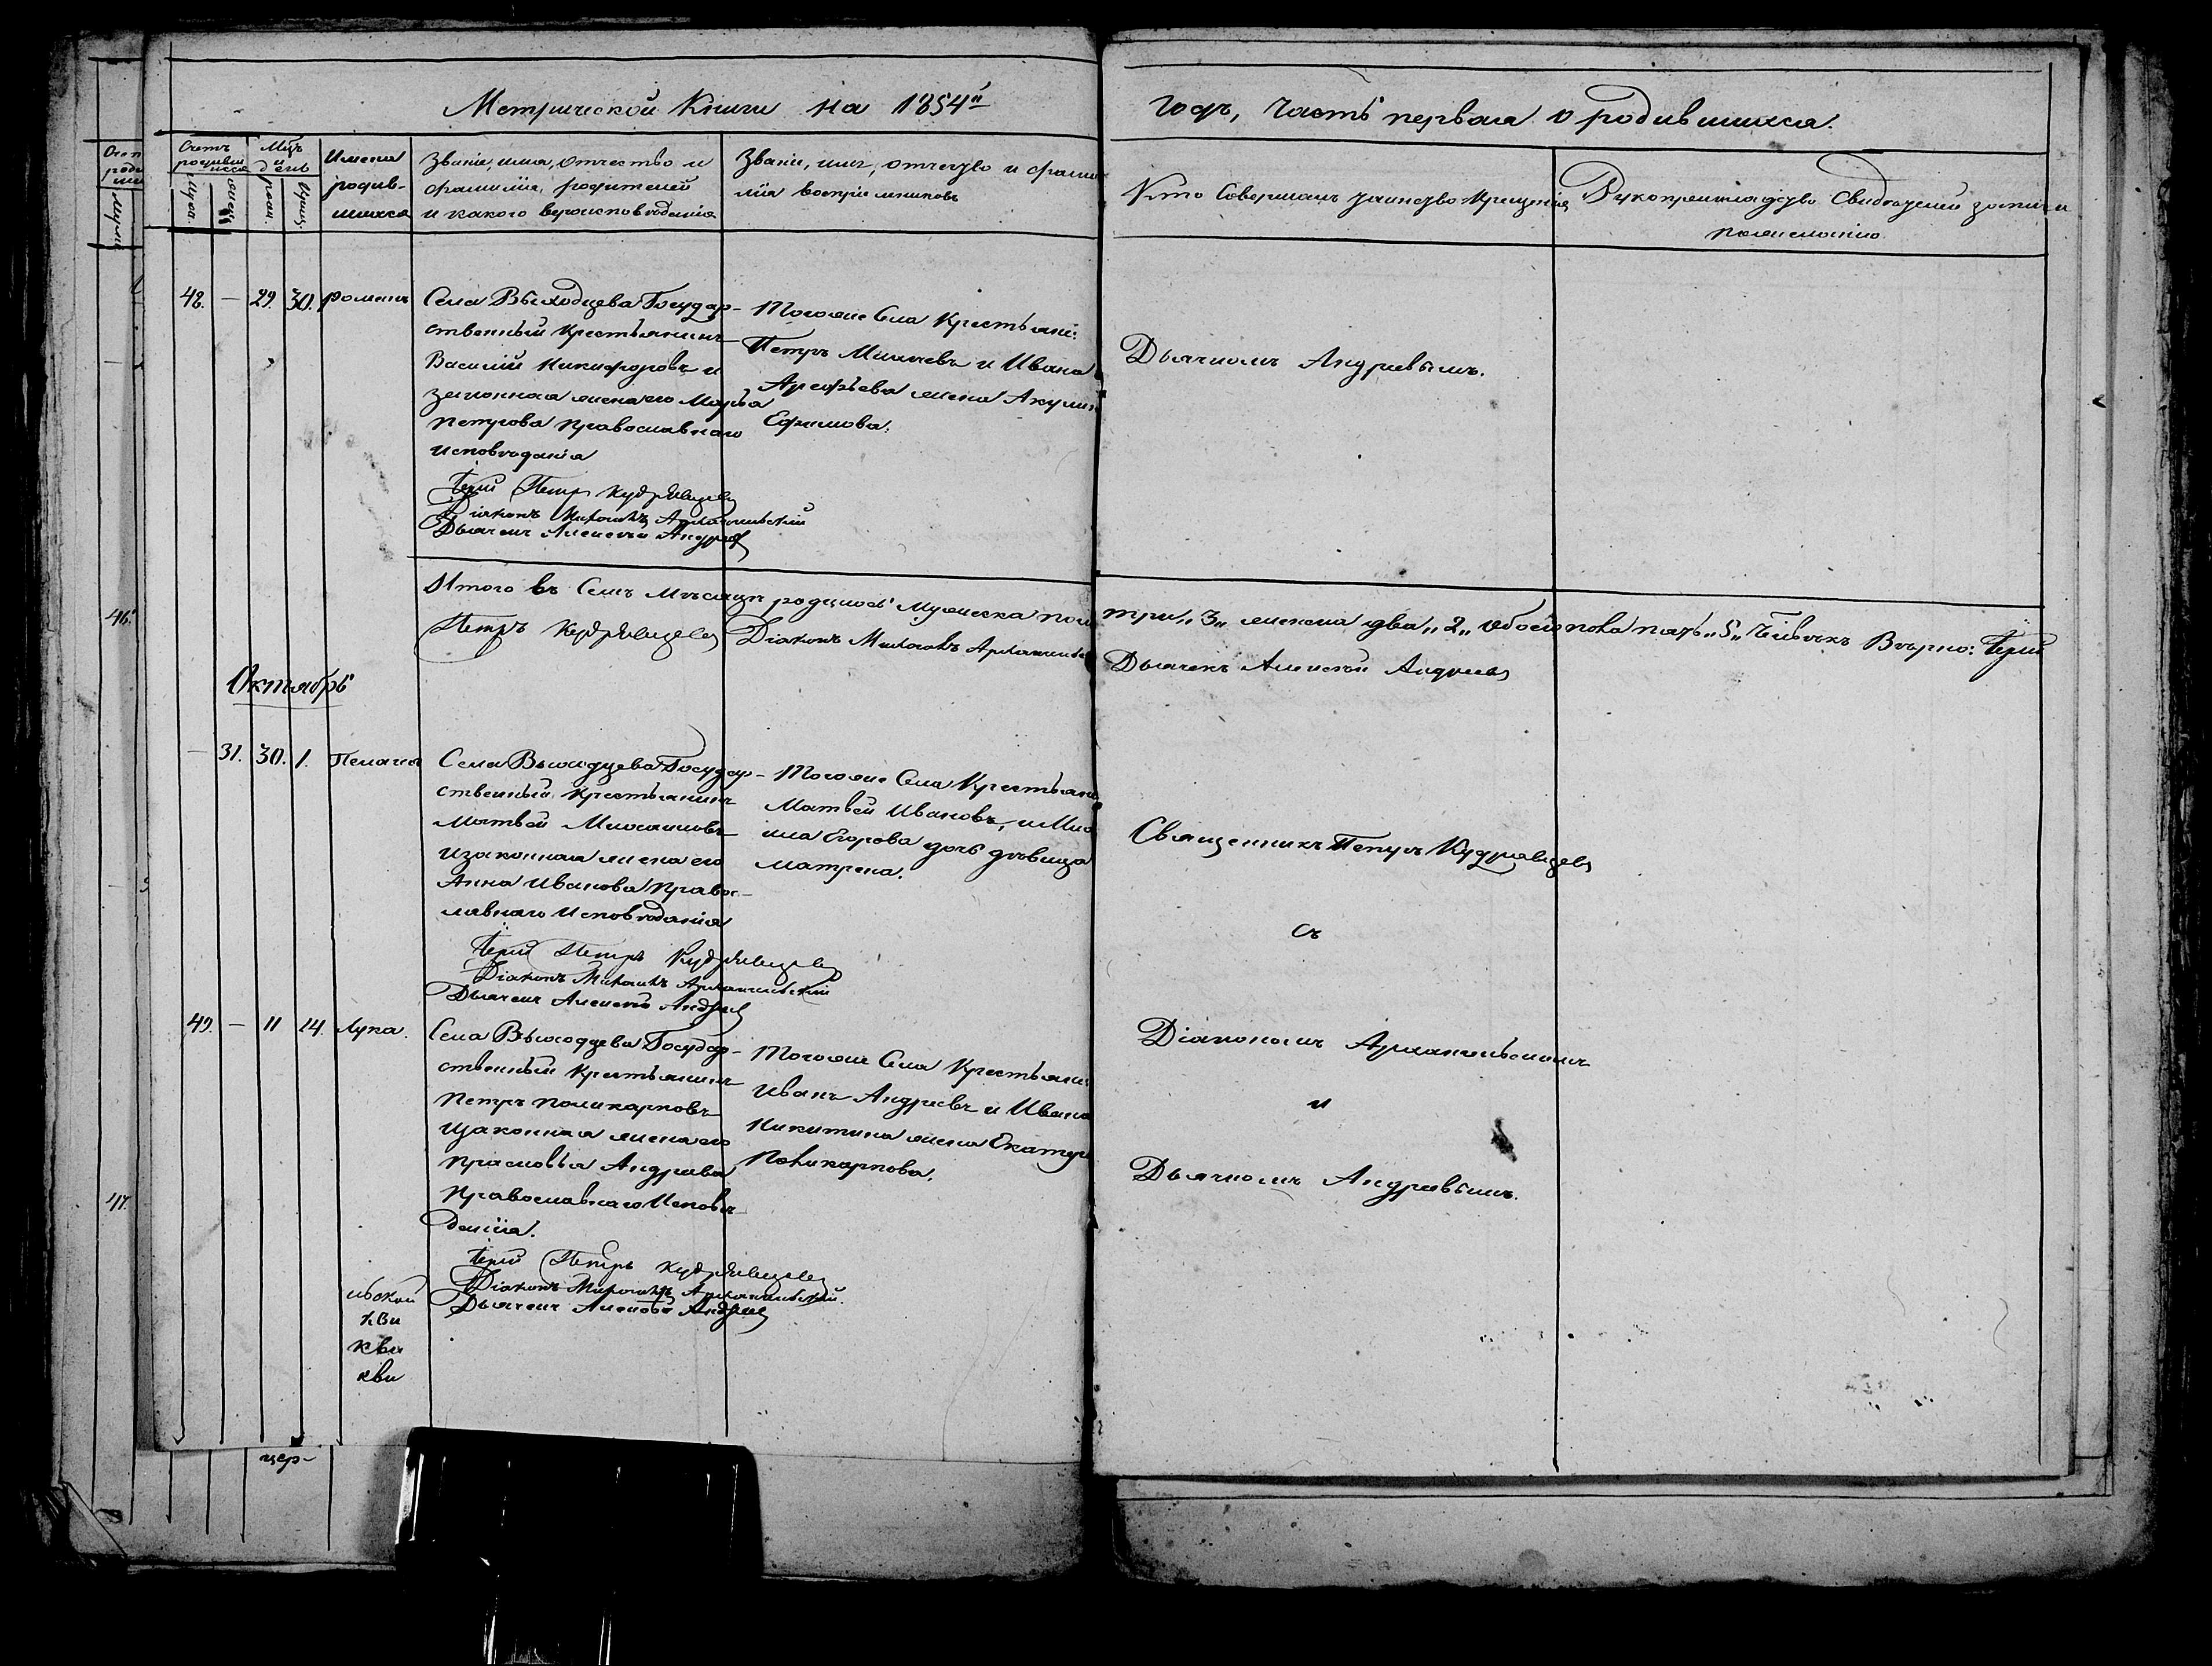 Метрической Книги на 1854й
годъ, Часть первая о родившихся.
Счетъ родившихся
Мцъ и день
Имена родив-
шихся
Званіе, имя, отчество и
фамилія, родителей
и какого вероисповѣданія
Званіе, имя, отчество и фами
лія воспріемниковъ
Кто Совершалъ таинство Крещенія
Рукоприкладство Свидетелей записи
по желанію
48. — 29. 30. Романъ
Села Выходцева Государ-
ственный Крестьянинъ
Василий Никифоровъ и
законная жена его Марья
Петрова православнаго
исповѣданія
Іерей Петръ Кудрявцевъ
Діаконъ Михаилъ Архангельский
Дьячекъ Алексѣй Андреев
Того же Села Крестьяни:
Петръ Михаевъ и Ивана
Арефьева жена Акулин
Ефимова.
Дьячкомъ Андреевымъ.
Итого въ Семъ Мѣсяцѣ родилось Мужеска пол
три „3„ женска два „2„ обоего пола пять „5„ Человекъ Вѣрно: Іерей
Петръ Кудрявцевъ
Діаконъ Михаилъ Архангельс
Дьячекъ Алексѣй Андреев
46.
Октябрь
— 31. 30. 1. Пелагея
Села Выходцева Государ-
ственный Крестьянинъ
Матвей
и законная жена его
Анна Иванова право-
лавнаго Исповѣданія
Іерей Петръ Кудрявцевъ
Діаконъ Михаилъ Архангельский
Дьячекъ Алексѣй Андреев
Того же Села Крестьяни
Матвей Ивановъ, и
Егорова дочь дѣвица
Матрена.
Священникъ Петръ Кудрявцевъ
съ
49. — 11 14. Лука.
Села Выходцева Государ-
ственный Крестьянинъ
Петръ Поликарповъ
и законная жена его
Прасковья Андреева
Православнаго Исповѣ
данія.
Іерей Петръ Кудрявцевъ
Діаконъ Михаилъ Архангельский.
Дьячекъ Алексѣй Андреев
Того же Села Крестьяни:
Иванъ Андреевъ и Ивана
Никитина жена Екатери
Поликарпова.
Діакономъ Архангельскимъ
и
Дьячкомъ Андреевымъ.
47.
кви
кви
кви
цер-